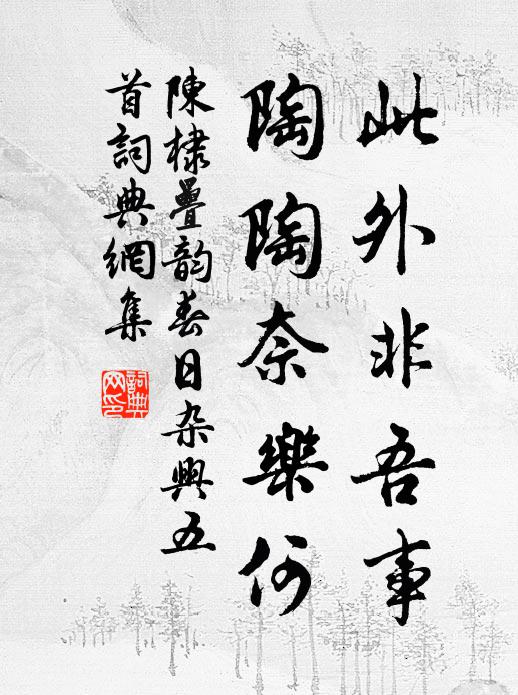 此外非吾事
陶陶奈樂何
陳棣疊韵春日杂興五
首詞典網集
詞典
网印